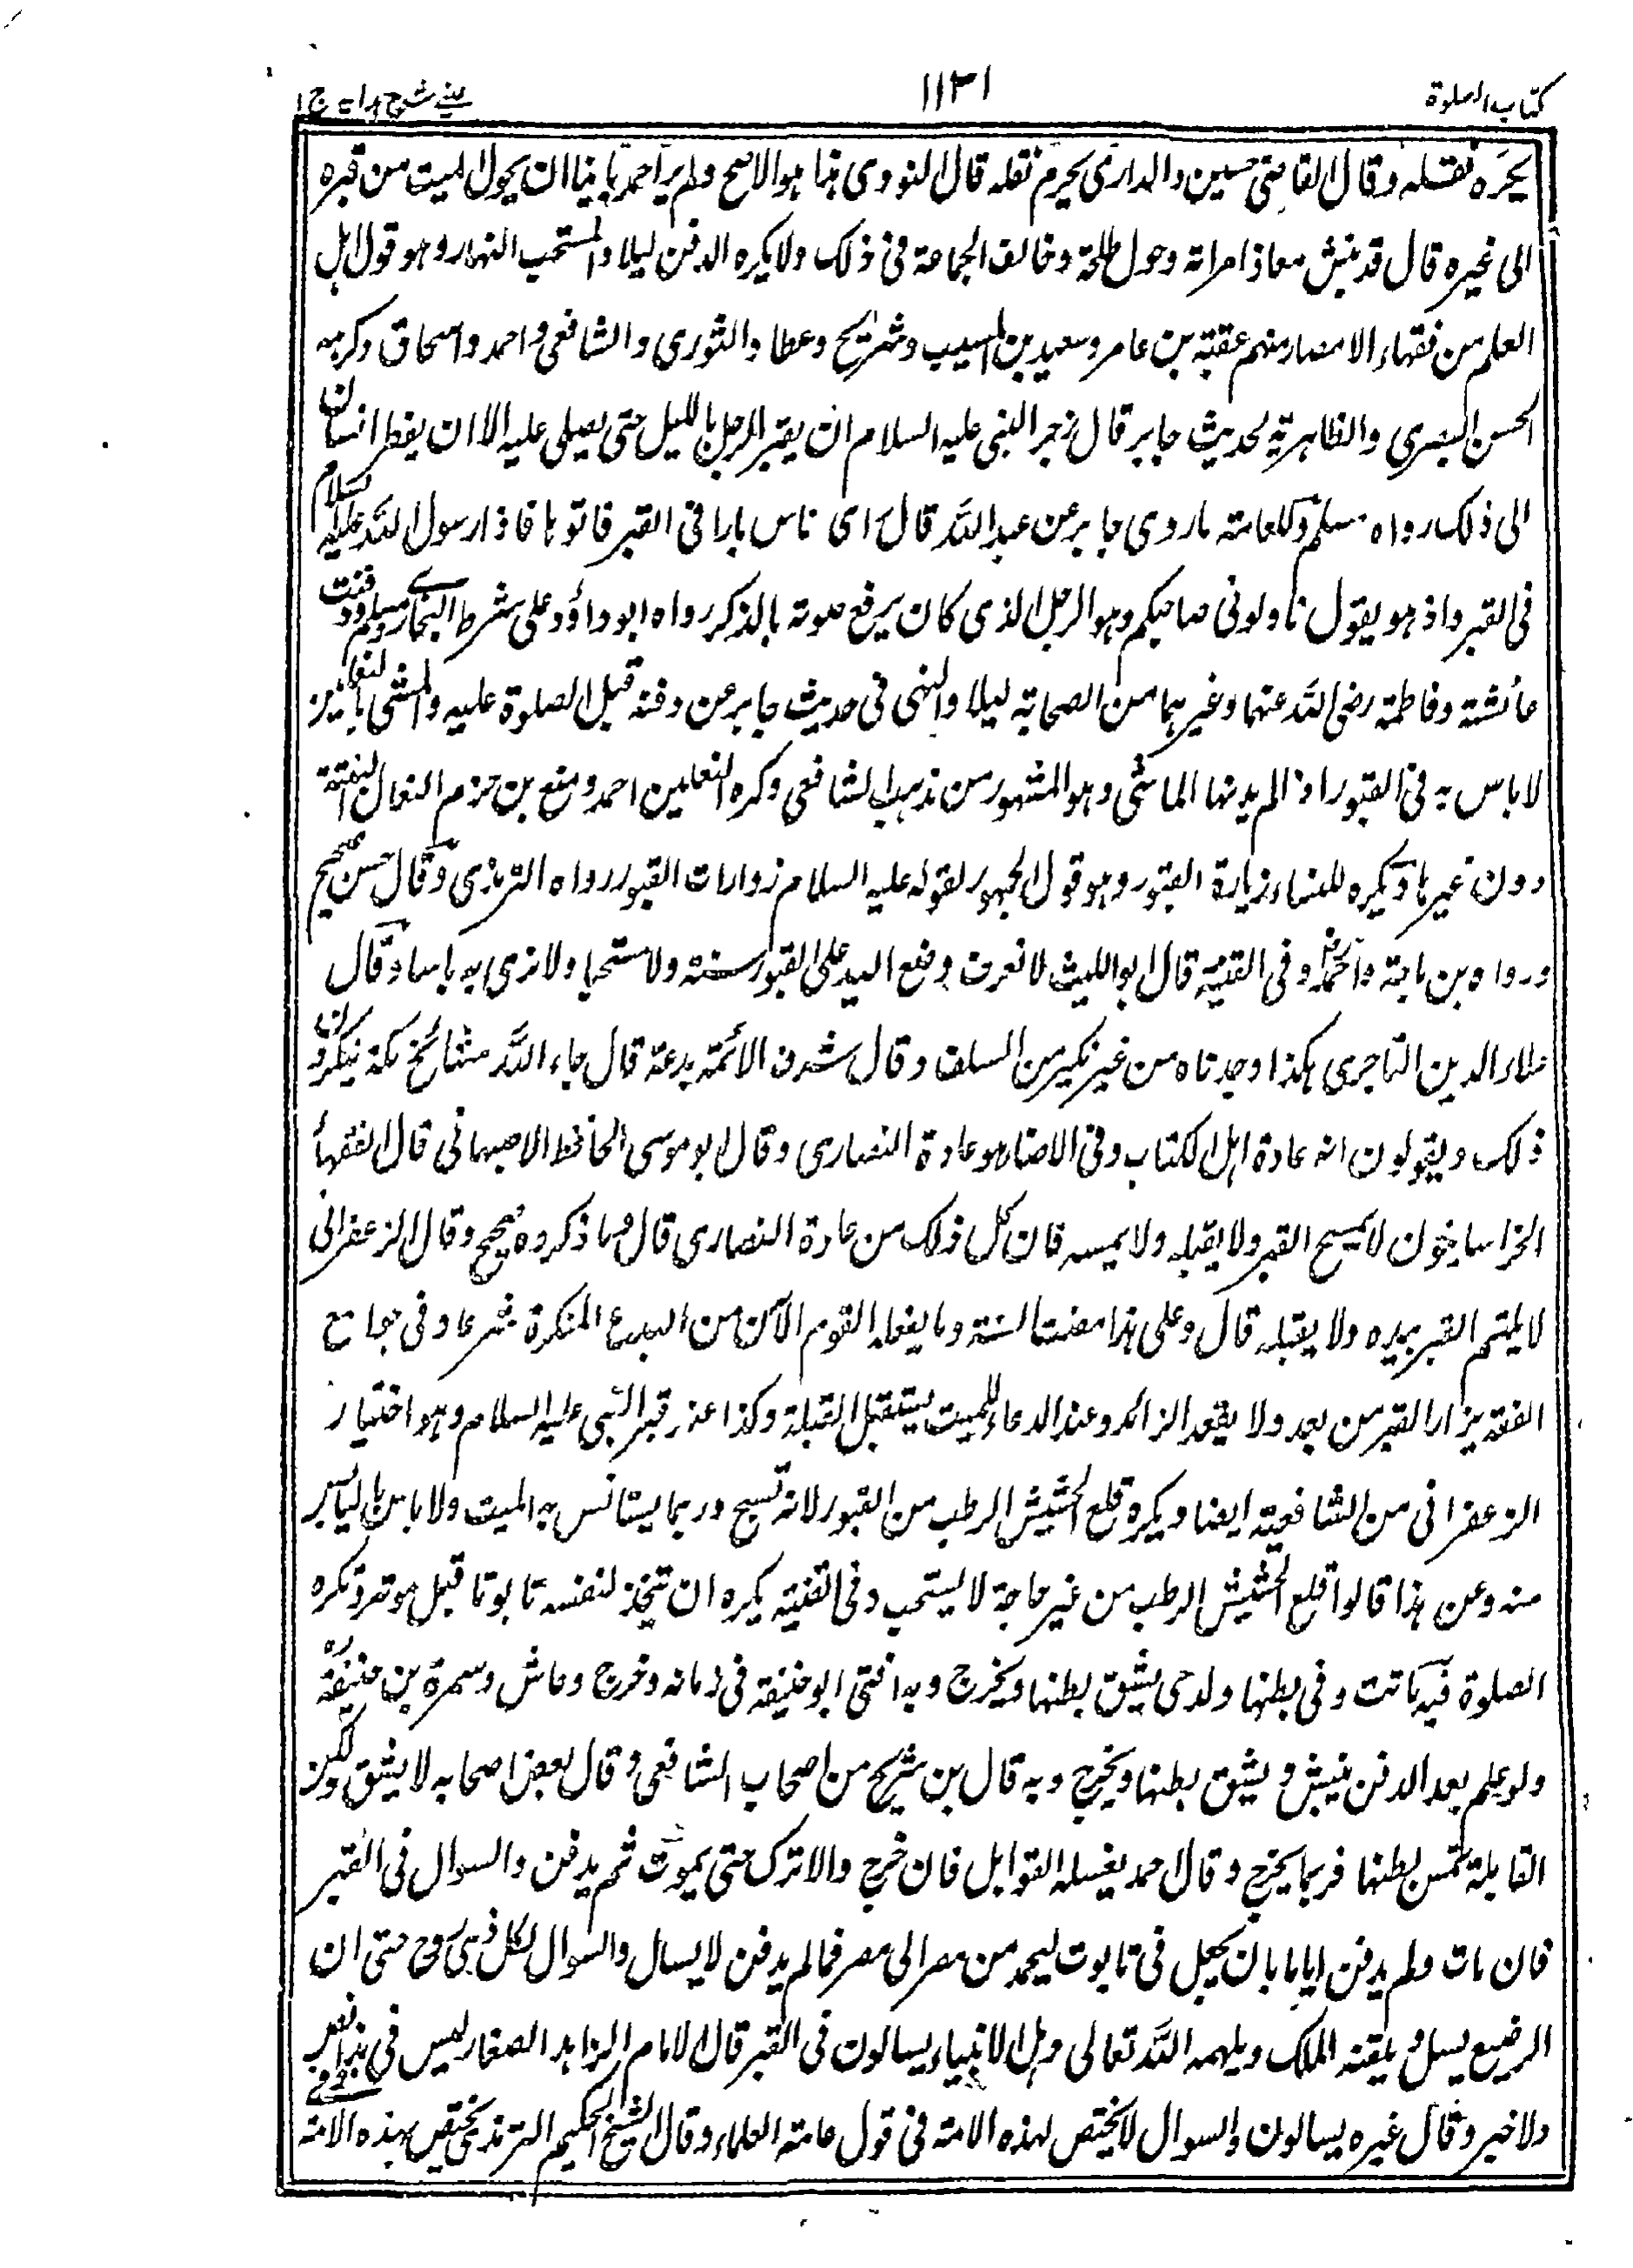 كتاب الصلوة
١١٣١
عيني شرح هداية ج ١
يكره نقله وقال القاضى حسين والدارى يحرم نقله قال النووى هذا هو الاصح ولم ير احمد باسا ان يحول الميت من قبره
الى غيره قال قد نبش معاذ امراته وحول طلحة وخالف الجماعة فى ذلك ولا يكره الدفن ليلا والمستحب النهار وهو قول اهل
العلم من فقهاء الامصار منهم عقبة بن عامر وسعيد بن المسيب وشريح وعطا والثورى والشافعى واحمد واسحاق وكرهه
الحسن البصرى والظاهرية لحديث جابر قال زجر النبى عليه السلام ان يقبر الرجل بالليل حتى يصلى عليه الا ان يضطر انسان
الى ذلك رواه مسلم وللعامة ما روى جابر عن عبد الله قال راى ناس نارا فى القبر فاتوها فاذا رسول الله عليه السلام
فى القبر واذ هو يقول ناولونى صاحبكم وهو الرجل الذى كان يرفع صوته بالذكر رواه ابو داؤد على شرط البخارى ومسلم ودفنت
عائشة وفاطمة رضى الله عنهما وغيرهما من الصحابة ليلا والنهى فى حديث جابر عن دفنه قبل الصلوة عليه والمشى بالنعلين
لا باس به فى القبور اذا لم يدنها الماشى وهو المشهور من مذهب الشافعى وكره النعلين احمد ومنع بن حزم النعال السبتية
دون غيرها ويكره للنساء زيارة القبور وهو قول الجمهور لقوله عليه السلام زوارات القبور رواه الترمذى وقال حسن صحيح
ورواه بن ماجة واحمد وفى القنية قال ابو الليث لا نعرف وضع اليد على القبور سنة ولا مستحبا ولا نرى به باسا وقال
علاء الدين التاجرى هكذا وجدناه من غير نكير من السلف وقال شرف الائمة بدعة قال جاء الله مشائخ مكة ينكرون
ذلك ويقولون انه عادة اهل الكتاب وفى الاحياء هو عادة النصارى وقال ابو موسى الحافظ الاصبهانى قال الفقهاء
الخراسانيون لا يمسح القبر ولا يقبله ولا يمسه فان كل ذلك من عادة النصارى قال وما ذكروه صحيح وقال الزعفرانى
لا يلتمس القبر بيده ولا يقبله قال وعلى هذا مضت السنة وما يفعله القوم الآن من البدع المنكرة شرعا وفى جوامع
الفقه يزار القبر من بعد ولا يقعد الزائر وعند الدعاء للميت يستقبل القبلة وكذا عند قبر النبى عليه السلام وهو اختيار
الزعفرانى من الشافعية ايضا ويكره قلع الحشيش الرطب من القبور لانه تسبح وربما يستانس به الميت ولا باس باليابس
منه وعن هذا قالوا قلع الحشيش الرطب من غير حاجة لا يستحب وفى القنية يكره ان يتخذ لنفسه تابوتا قبل موته وتكره
الصلوة فيه ماتت وفى بطنها ولد حى يشق بطنها ويخرج وبه افتى ابو حنيفة فى زمانه وخرج وعاش وسمرة بن حنيفة
ولو علم بعد الدفن ينبش ويشق بطنها ويخرج وبه قال بن شريح من اصحاب الشافعى وقال بعض اصحابه لا يشق ولكن
القابلة تمس بطنها فربما يخرج وقال احمد يغسله القوابل فان خرج والا ترك حتى يموت ثم يدفن والسوال فى القبر
فان مات ولم يدفن اياما بان يجعل فى تابوت ليحمد من مصر الى مصر فما لم يدفن لا يسال والسوال لكل ذى روح حتى ان
الرضيع يسل ويلقنه الملك ويلهمه الله تعالى وهل الانبياء يسالون فى القبر قال الامام الزاهد الصفار ليس فى هذا نص
ولا خبر وقال غيره يسالون والسوال لا يختص لهذه الامة فى قول عامة العلماء وقال الشيخ الحكيم الترمذى يختص بهذه الامة